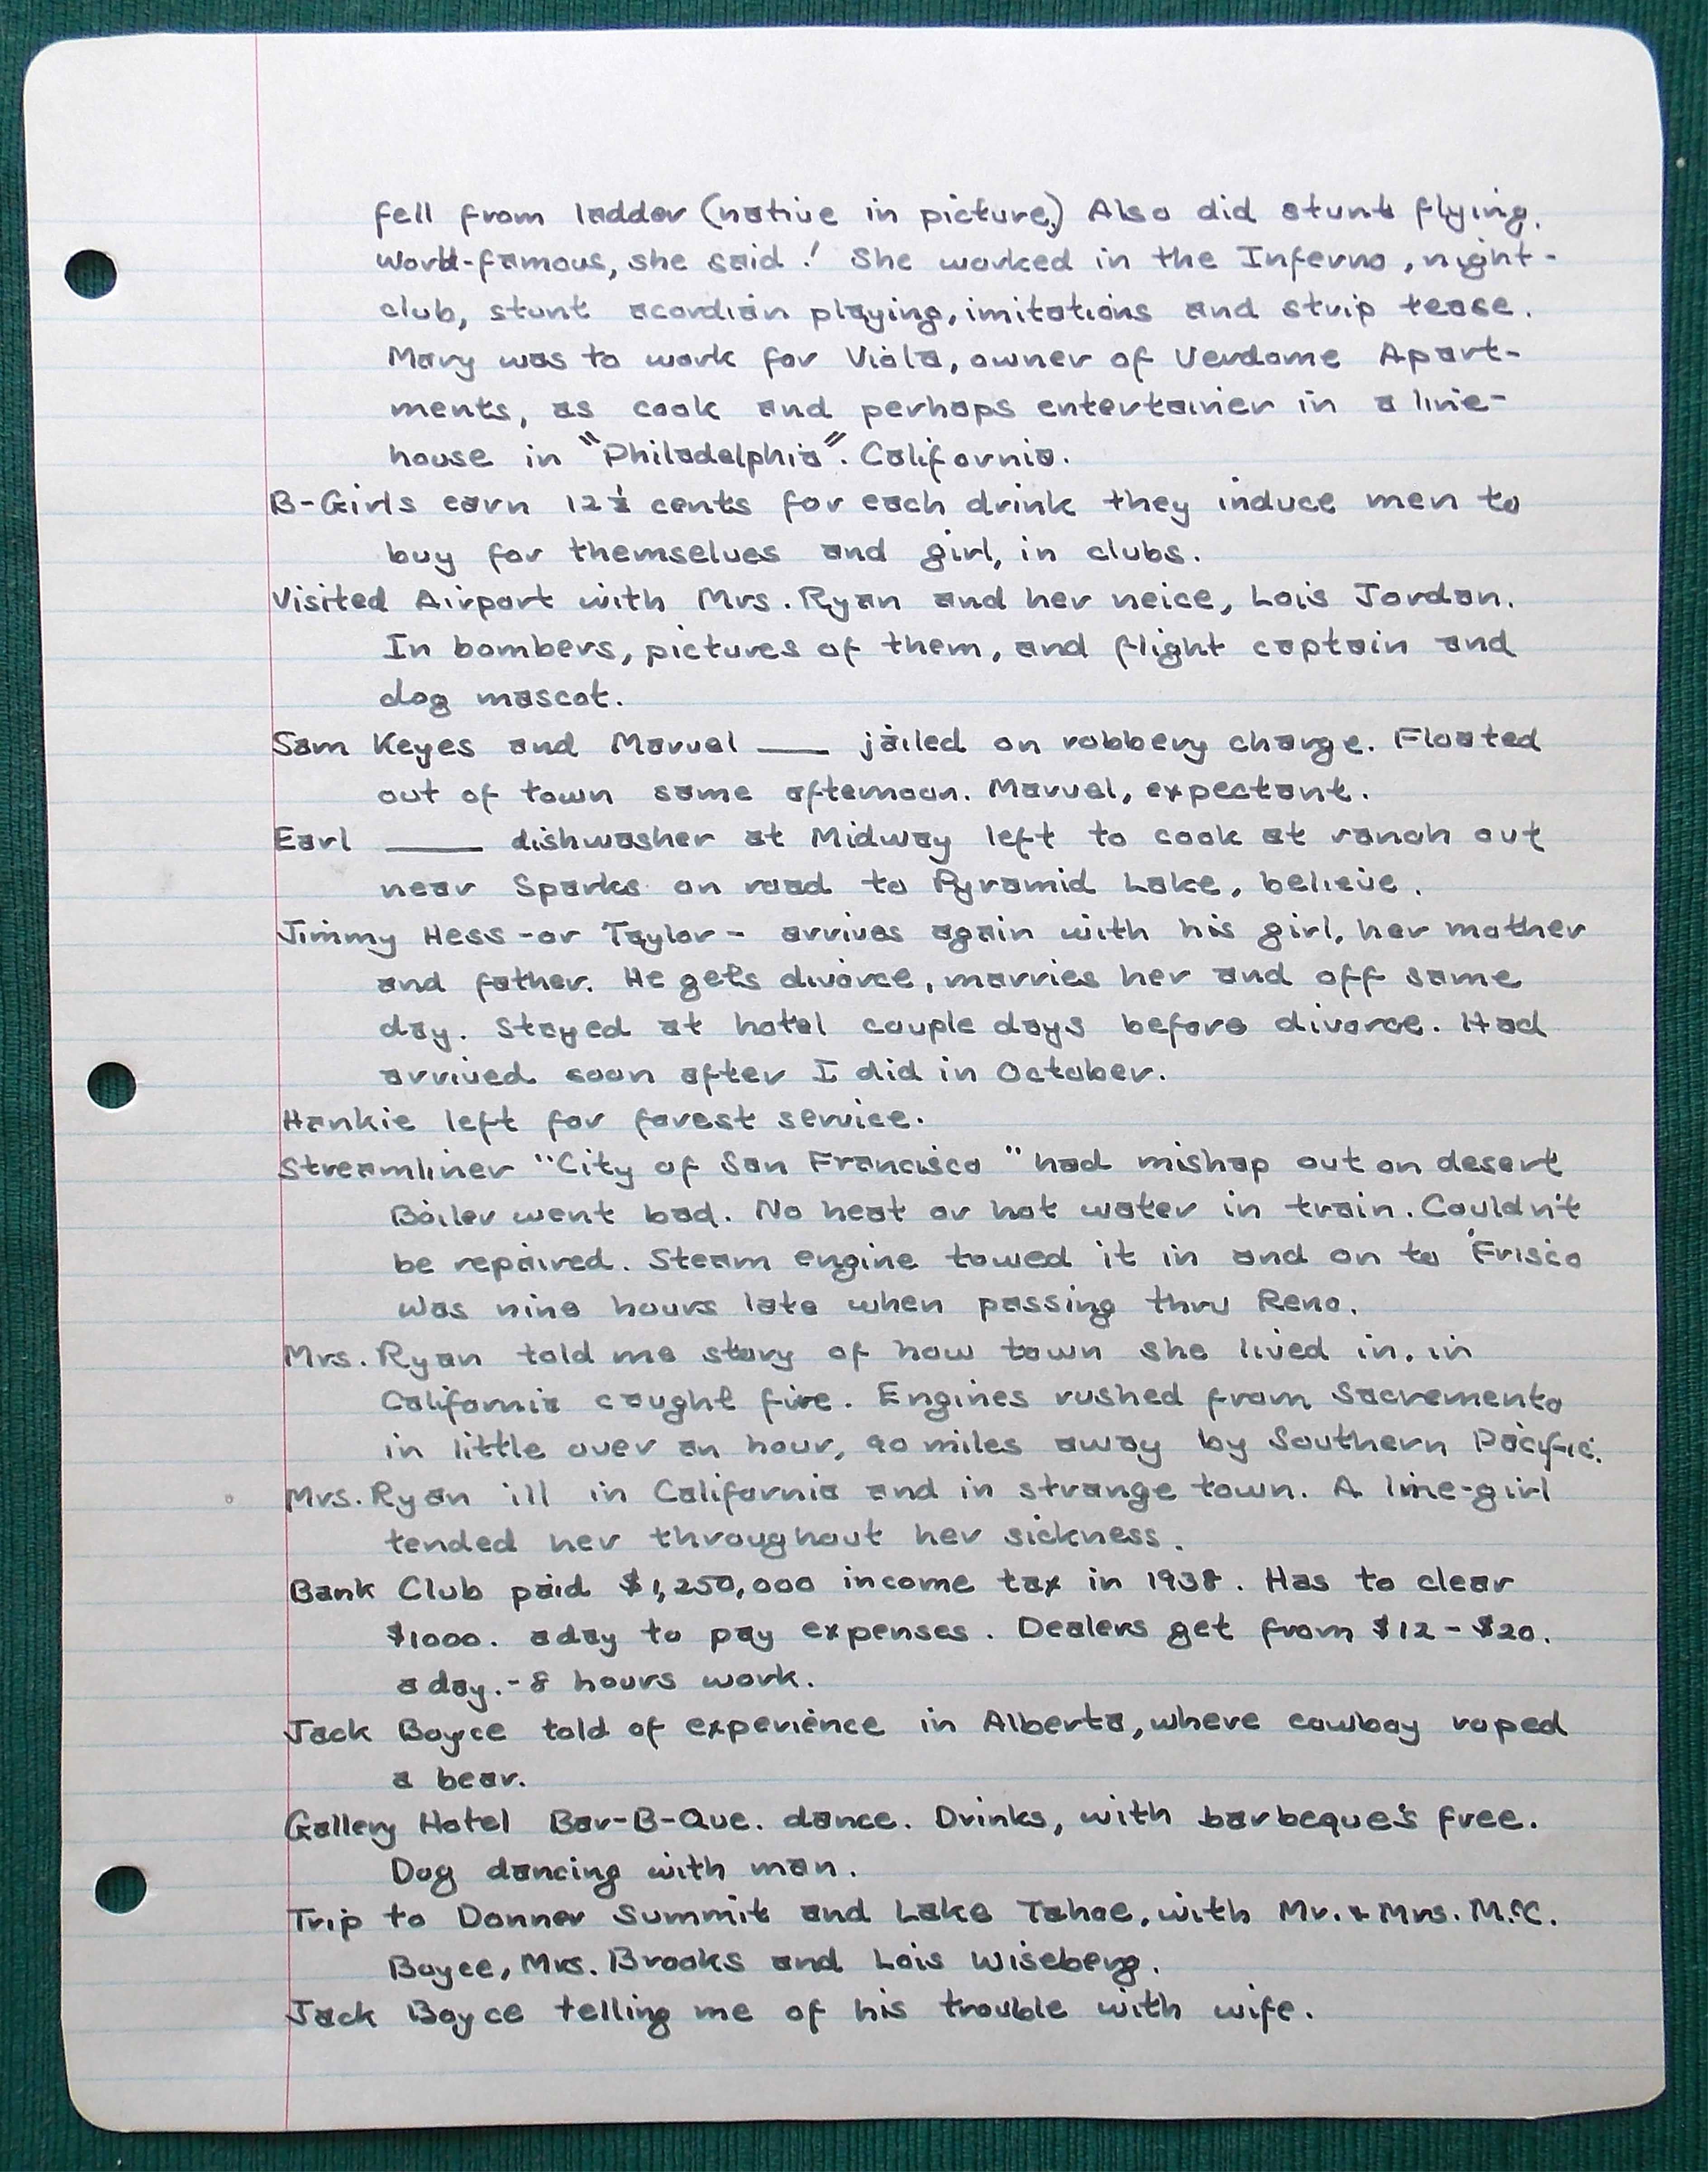 fell from ladder (native in picture.) Also did stunt flying.
World-famous, she said! She worked in the Inferno, night-
club, stunt acordian playing, imitations and strip tease.
Mary was to work for Viola, owner of Vendome Apart-
ments, as cook and perhaps entertainer in a line-
house in "Philadelphia". California.
B-Girls earn 12½ cents for each drink they induce men to
buy for themselves and girl, in clubs.
Visited Airport with Mrs. Ryan and her neice, Lois Jordan.
In bombers, pictures of them, and flight captain and
dog mascot.
Sam Keyes and Marvel ___ jailed on robbery charge. Floated
out of town same afternoon. Marvel, expectant.
Earl ____ dishwasher at Midway left to cook at ranch out
near Sparks on road to Pyramid Lake, believe.
Jimmy Hess -or Taylor- arrives again with his girl, her mother
and father. He gets divorce, marries her and off same
day. Stayed at hotel couple days before divorce. Had
arrived soon after I did in October.
Hankie left for forest service.
Streamliner "City of San Francisco" had mishap out on desert
Boiler went bad. No heat or hot water in train. Couldn't
be repaired. Steam engine towed it in and on to 'Frisco
Was nine hours late when passing thru Reno.
Mrs. Ryan told me story of how town she lived in, in
California caught fire. Engines rushed from Sacremento
in little over an hour, 90 miles away by Southern Pacific.
Mrs. Ryan ill in California and in strange town. A line-girl
tended her throughout her sickness.
Bank Club paid $1,250,000 income tax in 1938. Has to clear
$1000. aday to pay expenses. Dealers get from $12 - $20.
a day.- 8 hours work.
Jack Boyce told of experience in Alberta, where cowboy roped
a bear.
Gallery Hotel Bar-B-Que. dance. Drinks, with barbeque's free.
Dog dancing with man.
Trip to Donner Summit and Lake Tahoe, with Mr. & Mrs. M.C.
Boyce, Mrs. Brooks and Lois Wiseberg.
Jack Boyce telling me of his trouble with wife.